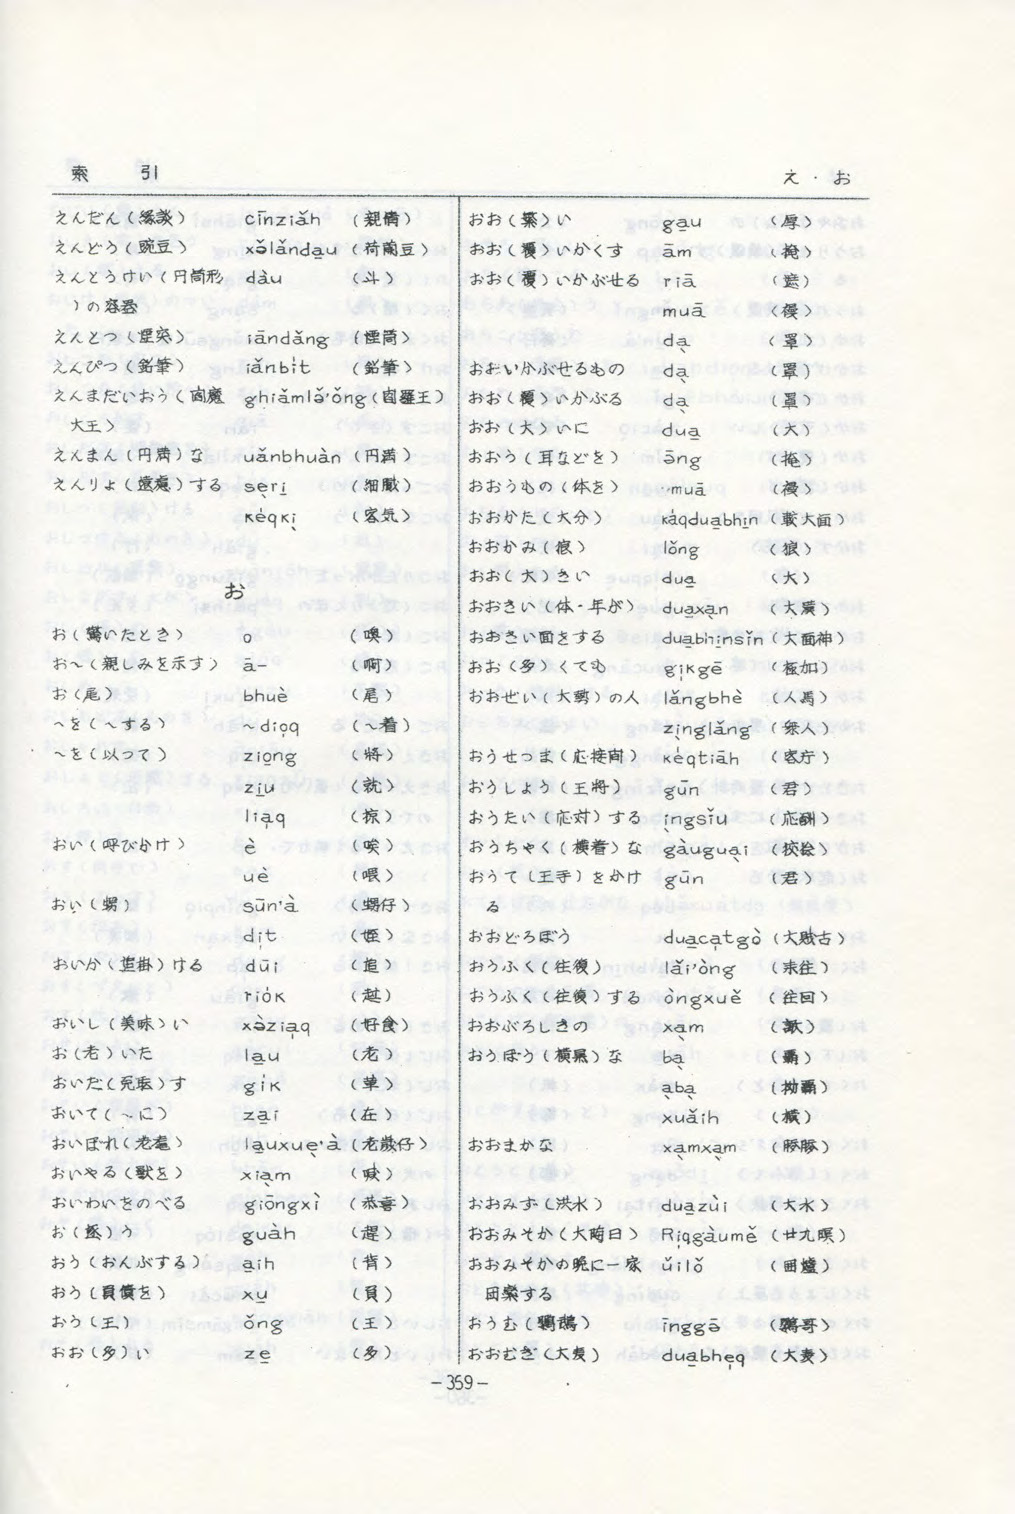 索 引
え・お
えんだん(縁談) cīnziǎh (親情)
えんどう(豌豆) xǒlǎnda̱u (荷蘭豆)
えんとうけい(円筒形 dàu (斗)
)の容器
えんとつ(煙突) iāndǎng (煙筒)
えんぴつ(鉛筆) iǎnbit (鉛筆)
えんまだいおう(閻魔 ghiāmlə̌'ǒng (閻羅王)
大王)
えんまん(円満)な uǎnbhuàn (円満)
えんりょ(遠慮)する se̱ri̱ (細膩)
κéqκi̱ (客気)
お
お(驚いたとき) o (噢)
お～(親しみを示す) ā- (啊)
お(尾) bhuè (尾)
～を(～する) ～dio̱q (～着)
～を(以って) zio̱ng (将)
zi̱u (就)
lia̱q (掠)
おい(呼びかけ) è (唉)
uè (喂)
おい(甥) sūn'à (甥仔)
di̱t (姪)
おいか(追掛)ける dūi (追)
rióκ (越)
おいし(美味)い xə̀zia̱q (好食)
お(老)いた la̱u (老)
おいだ(死亟)す gíκ (革)
おいて(～に) za̱i (在)
おいぼれ(老耄) la̱uxue̱'à (老歳仔)
おいやる(獣を) xia̱m (喊)
おいわいをのべる giōngxì (恭喜)
お(逐)う guàh (趕)
おう(おんぶする) a̱ih (背)
おう(負債を) xu̱ (負)
おう(王) ǒng (王)
おお(多)い ze̱ (多)
おお(繁)い ga̱u (厚)
おお(覆)いかくす ām (掩)
おお(覆)いかぶせる riā (遮)
muā (幔)
da̱ (罩)
おおいかぶせるもの da̱ (罩)
おお(覆)いかぶる da̱ (罩)
おお(大)いに dua̱ (大)
おおう(耳などを) ōng (掩)
おおうもの(体を) muā (幔)
おおかた(大分) κáqdua̱bhi̱n (較大面)
おおかみ(狼) lǒng (狼)
おお(大)きい dua̱ (大)
おおきい(体・年が) dua̱xa̱n (大漢)
おおきい面をする dua̱bhi̱nsǐn (大面神)
おお(多)くても gi̱κgē (極加)
おおぜい(大勢)の人 lǎngbhè (人馬)
zi̱nglǎng (衆人)
おうせつま(応接間) κéqtiāh (客庁)
おうしよう(王将) gūn (君)
おうたい(応対)する i̱ngsǐu (応酬)
おうちゃく(横着)な gàugua̱i (狡獪)
おうて(王手)をかけ gūn (君)
る
おおどろぼう dua̱ca̱tgò (大賊古)
おうふく(往復) lǎi'òng (来往)
おうふく(往復)する òngxuě (往回)
おおぶろしきの xa̱m (歁)
おうぼう(横暴)な ba̱ (覇)
a̱ba̱ (拗覇)
xuǎih (横)
おおまかな xa̱mxa̱m
おおみず(洪水) dua̱zùi (大水)
おおみそか(大晦日) Ri̱qgàumě (廿九暝)
おおみそかの晩に一家 ǔilǒ (囲爐)
団欒する
おうむ(鸚鵡) īnggō (鸚哥)
おおむぎ(大麦) dua̱bhe̱q (大麦)
-359-